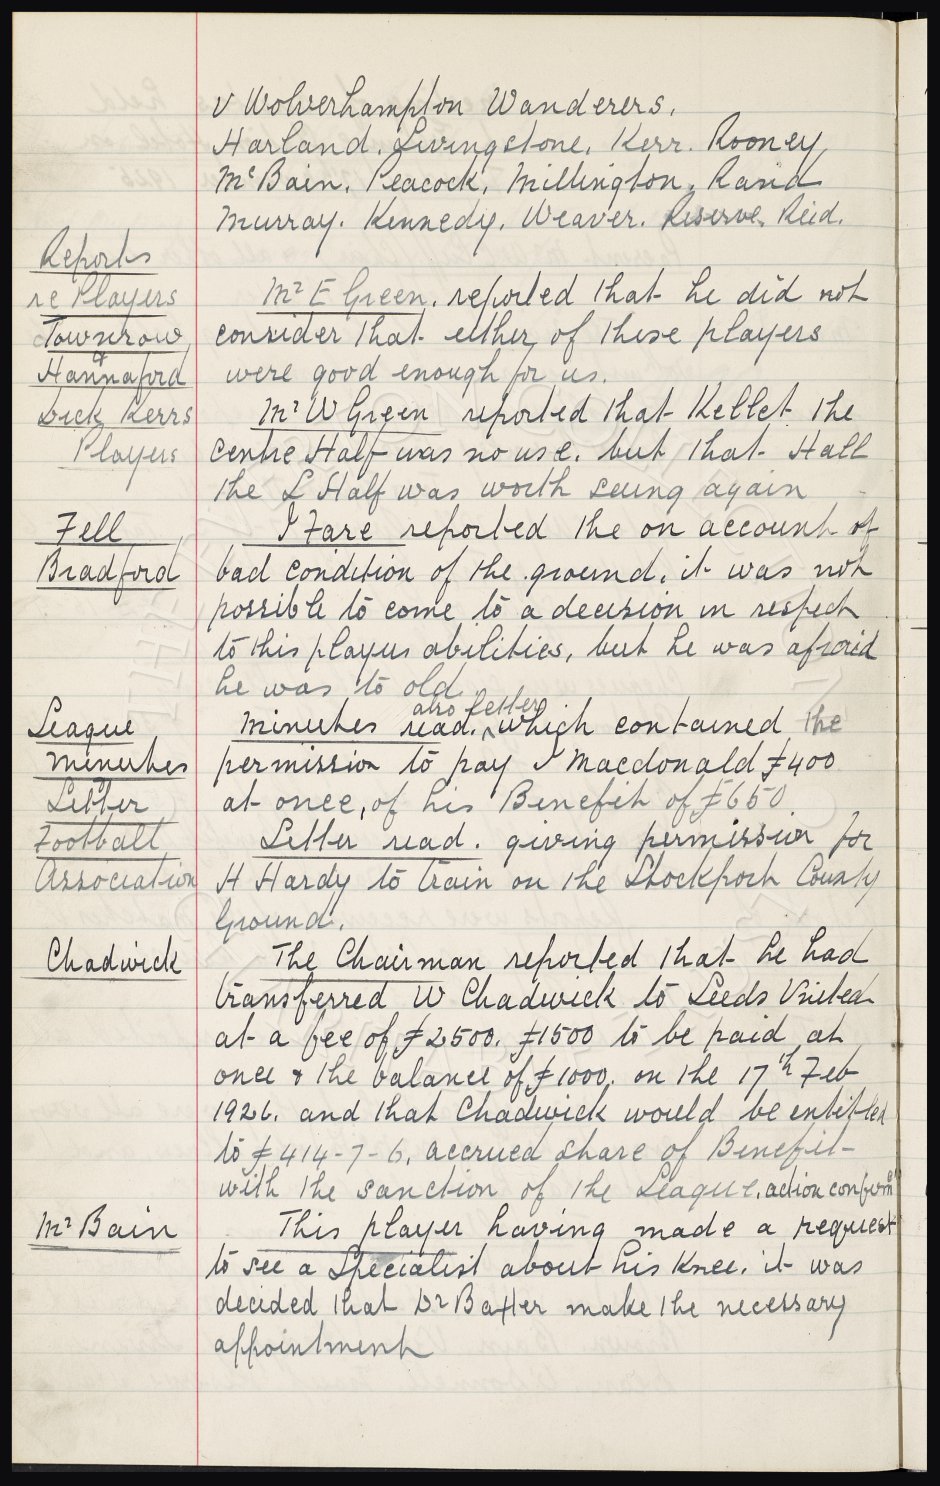 v Wolverhampton Wanderers.
Harland. Livingstone. Kerr. Rooney,
McBain. Peacock. Millington. Rand
Murray. Kennedy. Weaver. Reserve. Reid.
Reports
re Players
Townrow
&
Hannaford
Mr E Green. reported that he did not
consider that either of these players
were good enough for us.
Dick Kerrs
Players
Mr W Green reported that Kellet the
centre Half was no use. but that Hall
the L Half was worth seeing again
Fell
Bradford
J Fare reported the on account of
bad condition of the ground. it was not
possible to come to a decision in respect
to this players abilities, but he was afraid
he was to old.
League
Minutes
Letter
also letter
Minutes read. ^ which contained the
permission to pay J Macdonald £400
at once, of his Benefit of £650
Football
Association
Letter read. giving permission for
H Hardy to train on the Stockport County
Ground.
Chadwick
The Chairman reported that he had
transferred W Chadwick to Leeds United
at a fee of £2500. £1500 to be paid at
once & the balance of £1000. on the 17th Feb
1926. and that Chadwick would be entitled
to £414-7-6. accrued share of Benefit
with the sanction of the League. action confirmd
Mr Bain
This player having made a request
to see a Specialist about his Knee. it was
decided that Dr Baxter make the necessary
appointment